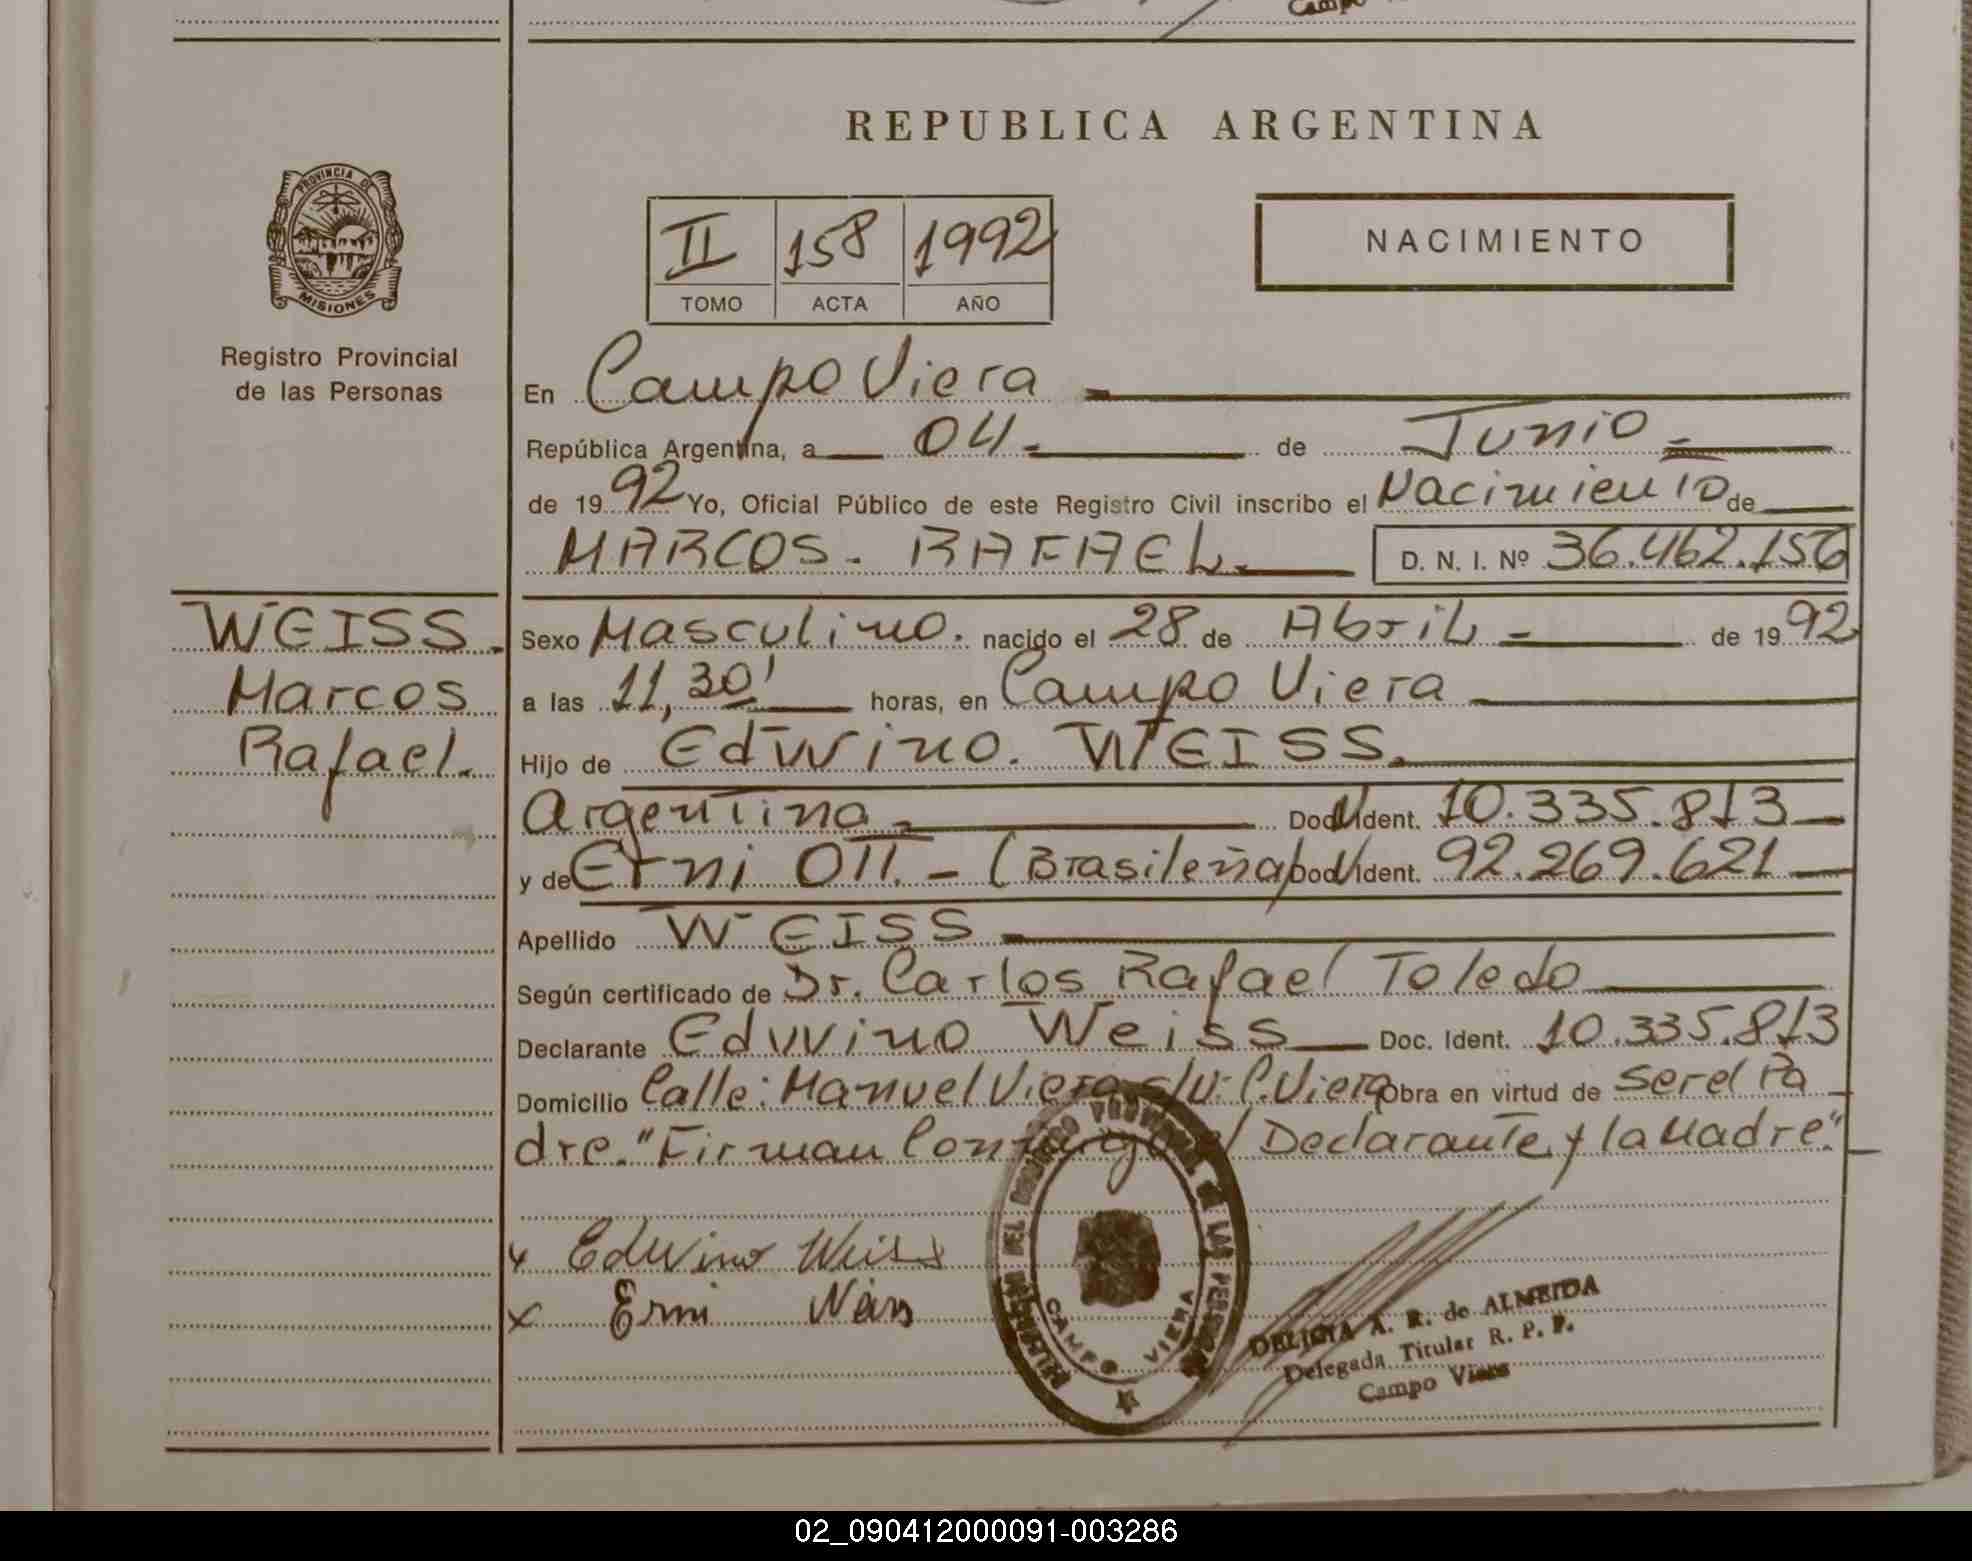 Campo
REPUBLICA ARGENTINA
PROVINCIA DE
MISIONES
Registro Provincial
de las Personas
II 158 1992
TOMO ACTA AÑO
NACIMIENTO
En Campo Viera
República Argentina, a 04 de Junio
de 1992 Yo, Oficial Público de este Registro Civil inscribo el Nacimiento de
MARCOS. RAFAEL. D. N. I. Nº 36.462.156
WEISS.
Marcos
Rafael.
Sexo Masculino. nacido el 28 de Abril de 1992
a las 11,30' horas, en Campo Viera
Hijo de Edwino. WEISS.
Argentina Doc. Ident. 10.335.813
y de Erni OTT. - (Brasileña) Doc. Ident. 92.269.621
Apellido WEISS
Según certificado de Dr. Carlos Rafael Toledo
Declarante Edwino Weiss Doc. Ident. 10.335.813
Domicilio Calle: Manuel Viera s/n: C. Viera Obra en virtud de ser el Pa
dre. "Firman Conmigo el Declarante y la Madre."
x Edwino Weiss
x Erni
CAMPO VIERA
DELICIA A. R. de ALMEIDA
Delegada Titular R. P. P.
Campo Viera
02_090412000091-003286